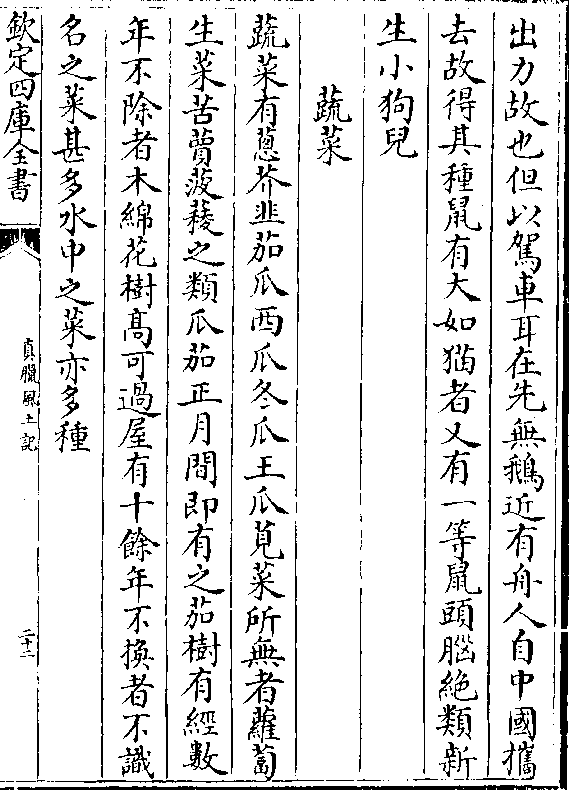 出力故也但以駕車耳在先無鵝近有舟人自中國攜
去故得其種鼠有大如猫者又有一等鼠頭腦絶類新
生小狗兒
蔬菜
蔬菜有蔥芥韭茄瓜西瓜冬瓜王瓜莧菜所無者蘿蔔
生菜苦蕒菠薐之類瓜茄正月間即有之茄樹有經數
年不除者木綿花樹髙可過屋有十餘年不換者不識
名之菜甚多水中之菜亦多種
欽定四庫全書
真臘風土記
二十二